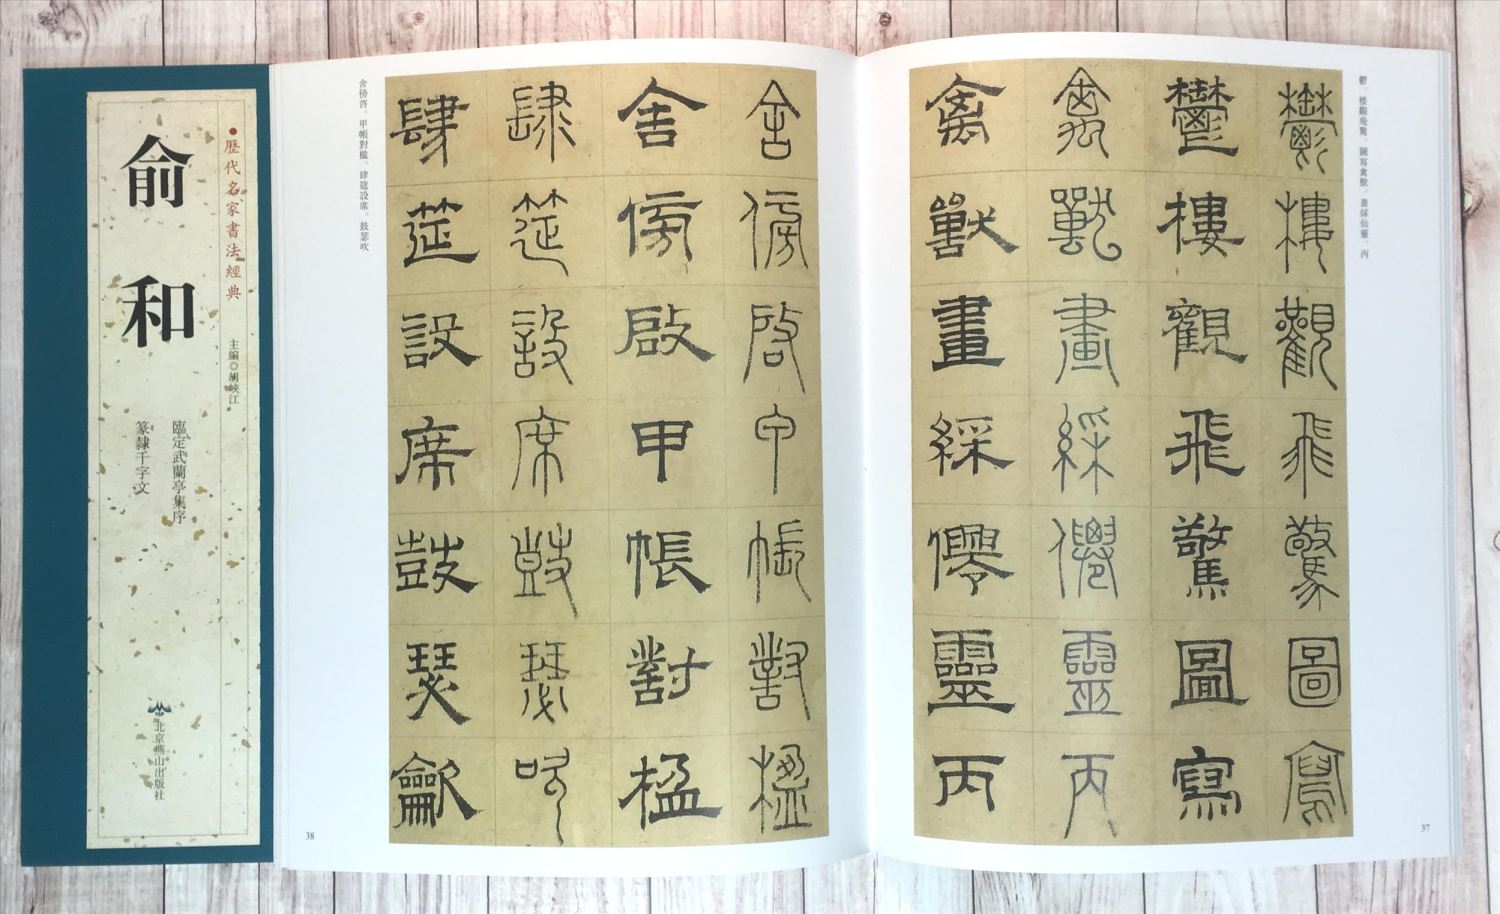 歷代名家書法經典
主編◎胡峽江
俞和
臨定武蘭亭集序
篆隸千字文
北京燕山出版社
鬱。樓觀飛驚。圖寫禽獸。畫綵仙靈。丙
鬱樓觀飛驚圖寫
鬱樓觀飛驚圖寫
禽獸畫綵僊靈丙
禽獸畫綵僊靈丙
37
舍傍啓甲帳對楹
舍傍啟甲帳對楹
肆筵設席鼓瑟吹
肆筵設席鼓瑟龡
舍傍啓。甲帳對楹。肆筵設席。鼓瑟吹
38